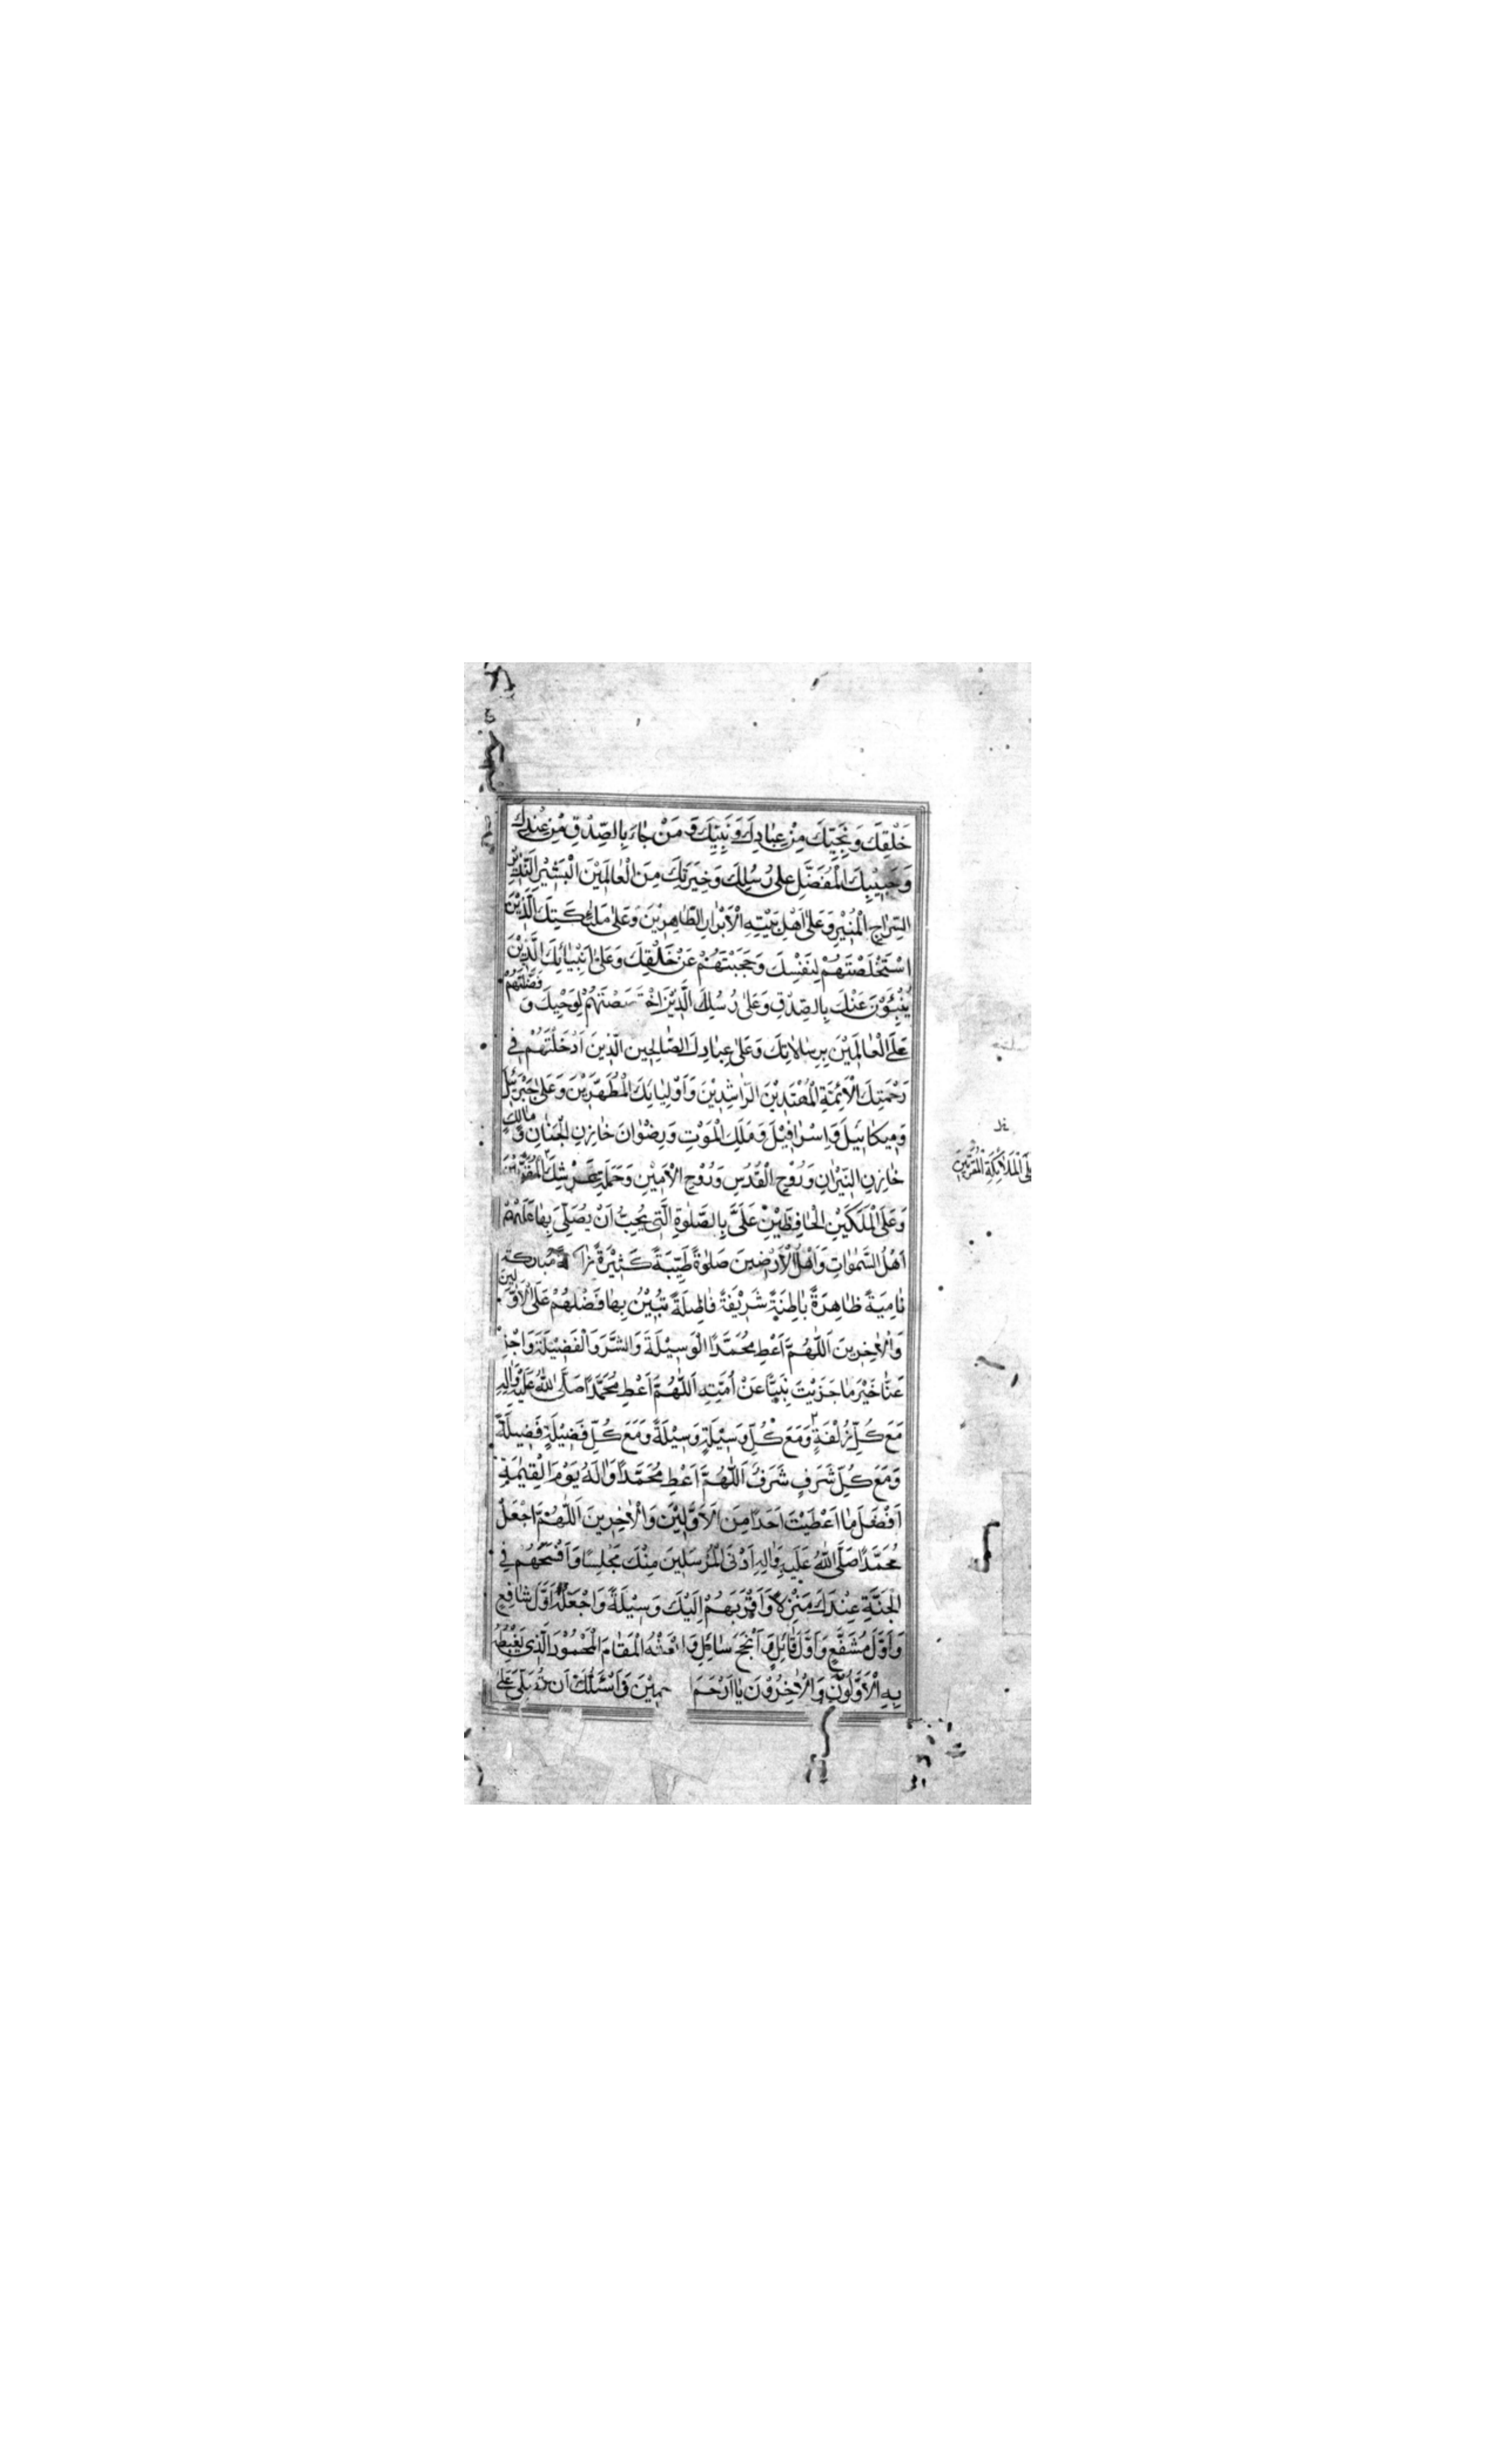 خَلْقِكَ وَنَجِيِّكَ مِنْ عِبَادِكَ وَنَبِيِّكَ وَمَنْ جَاءَ بِالصِّدْقِ مِنْ عِنْدِكَ
وَحَبِيْبِكَ الْمُفَضَّلِ عَلٰى رُسُلِكَ وَخِيَرَتِكَ مِنَ الْعَالَمِيْنَ الْبَشِيْرِ النَّذِيْرِ
السِّرَاجِ الْمُنِيْرِ وَعَلٰى اَهْلِ بَيْتِهِ الْاَبْرَارِ الطَّاهِرِيْنَ وَعَلٰى مَلٰئِكَتِكَ الَّذِيْنَ
اسْتَخْلَصْتَهُمْ لِنَفْسِكَ وَحَجَبْتَهُمْ عَنْ خَلْقِكَ وَعَلٰى اَنْبِيَائِكَ الَّذِيْنَ
يُنْبِئُوْنَ عَنْكَ بِالصِّدْقِ وَعَلٰى رُسُلِكَ الَّذِيْنَ اخْتَصَصْتَهُمْ لِوَحْيِكَ وَ فَضَّلْتَهُمْ
عَلَى الْعَالَمِيْنَ بِرِسَالَاتِكَ وَعَلٰى عِبَادِكَ الصَّالِحِينَ الَّذِينَ اَدْخَلْتَهُمْ فِي
رَحْمَتِكَ الْاَئِمَّةِ الْمُهْتَدِيْنَ الرَّاشِدِيْنَ وَاَوْلِيَائِكَ الْمُطَهَّرِيْنَ وَعَلٰى جَبْرَئِيلَ
وَمِيكَائِيلَ وَاِسْرَافِيْلَ وَمَلَكِ الْمَوْتِ وَرِضْوَانَ خَازِنِ الْجِنَانِ وَ مَالِكٍ
خَازِنِ النِّيْرَانِ وَرُوْحِ الْقُدُسِ وَرُوْحِ الْاَمِيْنِ وَحَمَلَةِ عَرْشِكَ الْمُقَرَّبِيْنَ
وَعَلَى الْمَلَكَيْنِ الْحَافِظَيْنِ عَلَىَّ بِالصَّلٰوةِ الَّتِى يُحِبُّ اَنْ يُصَلِّىَ بِهَا عَلَيْهِمْ
اَهْلُ السَّمٰوَاتِ وَاَهْلُ الْاَرَضِينَ صَلٰوةً طَيِّبَةً كَثِيْرَةً مُبَارَكَةً
نَامِيَةً ظَاهِرَةً بَاطِنَةً شَرِيْفَةً فَاضِلَةً تُبَيِّنُ بِهَا فَضْلَهُمْ عَلَى الْاَوَّلِينَ
وَالْاٰخِرِينَ اَللّٰهُمَّ اَعْطِ مُحَمَّدًا الْوَسِيْلَةَ وَالشَّرَوَالْفَضِيْلَةَ وَاجْزِ
عَنَّا خَيْرَ مَا جَزَيْتَ نَبِيًّا عَنْ اُمَّتِهِ اَللّٰهُمَّ اَعْطِ مُحَمَّدًا صَلَّى اللّٰهُ عَلَيْهِ وَاٰلِهِ
مَعَ كُلِّ زُلْفَةٍ وَمَعَ كُلِّ وَسِيْلَةٍ وَسِيْلَةً وَمَعَ كُلِّ فَضِيْلَةٍ فَضِيلَةً
وَمَعَ كُلِّ شَرَفٍ شَرَفً اَللّٰهُمَّ اَعْطِ مُحَمَّدًا وَاٰلَهُ يَوْمَ الْقِيٰمَةِ
اَفْضَلَ مَا اَعْطَيْتَ اَحَدًا مِنَ الْاَوَّلِيْنَ وَالْاٰخِرِينَ اَللّٰهُمَّ اجْعَلْ
مُحَمَّدًا صَلَّى اللّٰهُ عَلَيْهِ وَاٰلِهِ اَدْنَى الْمُرْسَلِينَ مِنْكَ مَجْلِسًا وَاَفْسَحَهُمْ فِي
الْجَنَّةِ عِنْدَكَ مَنْزِلًا وَاَقْرَبَهُمْ اِلَيْكَ وَسِيْلَةً وَاجْعَلْهُ اَوَّلَ شَافِعٍ
وَاَوَّلَ مُشَفَّعٍ وَاَوَّلَ قَائِلٍ وَاَنْجَحَ سَائِلٍ الْمَقَامَ الْمَحْمُوْدَ الَّذِى يَغْبِطُهُ
بِهِ الْاَوَّلُوْنَ وَالْاٰخِرُوْنَ يَا اَرْحَمَ وَاَسْئَلُكَ اَنْ تُصَلِّىَ عَلٰى
عَلَى الْمَلَائِكَةِ الْمُقَرَّبِينَ